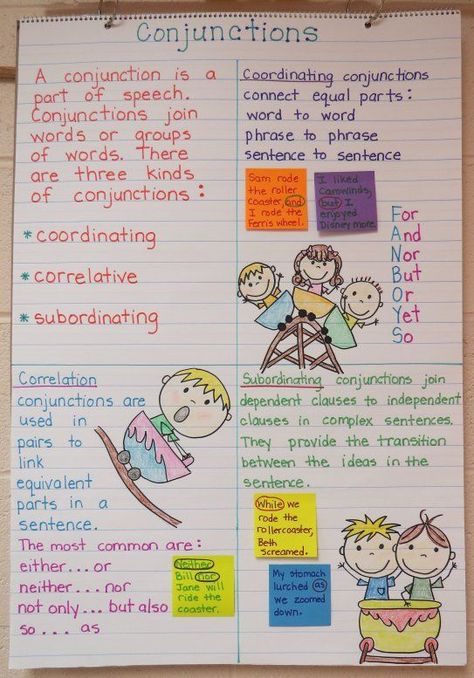 Conjunctions
A conjunction is a
part of speech.
Conjunctions join
words or groups
of words. There
are three kinds
of conjunctions :
* coordinating
* correlative
* subordinating
Coordinating conjunctions
connect equal parts :
word to word
phrase to phrase
sentence to sentence
Sam rode
the roller
coaster, and
I rode the
Ferris wheel.
I liked
Carowinds,
but I
enjoyed
Disney more.
For
And
Nor
But
Or
Yet
So
Correlation
conjunctions are
used in
pairs to
link
equivalent
parts in a
sentence.
The most common are :
either . . . or
neither . . . nor
not only . . . but also
so . . . as
Neither
Bill nor
Jane will
ride the
coaster.
Subordinating conjunctions join
dependent clauses to independent
clauses in complex sentences.
They provide the transition
between the ideas in the
sentence.
While we
rode the
rollercoaster,
Beth
screamed.
My stomach
lurched as
we zoomed
down.